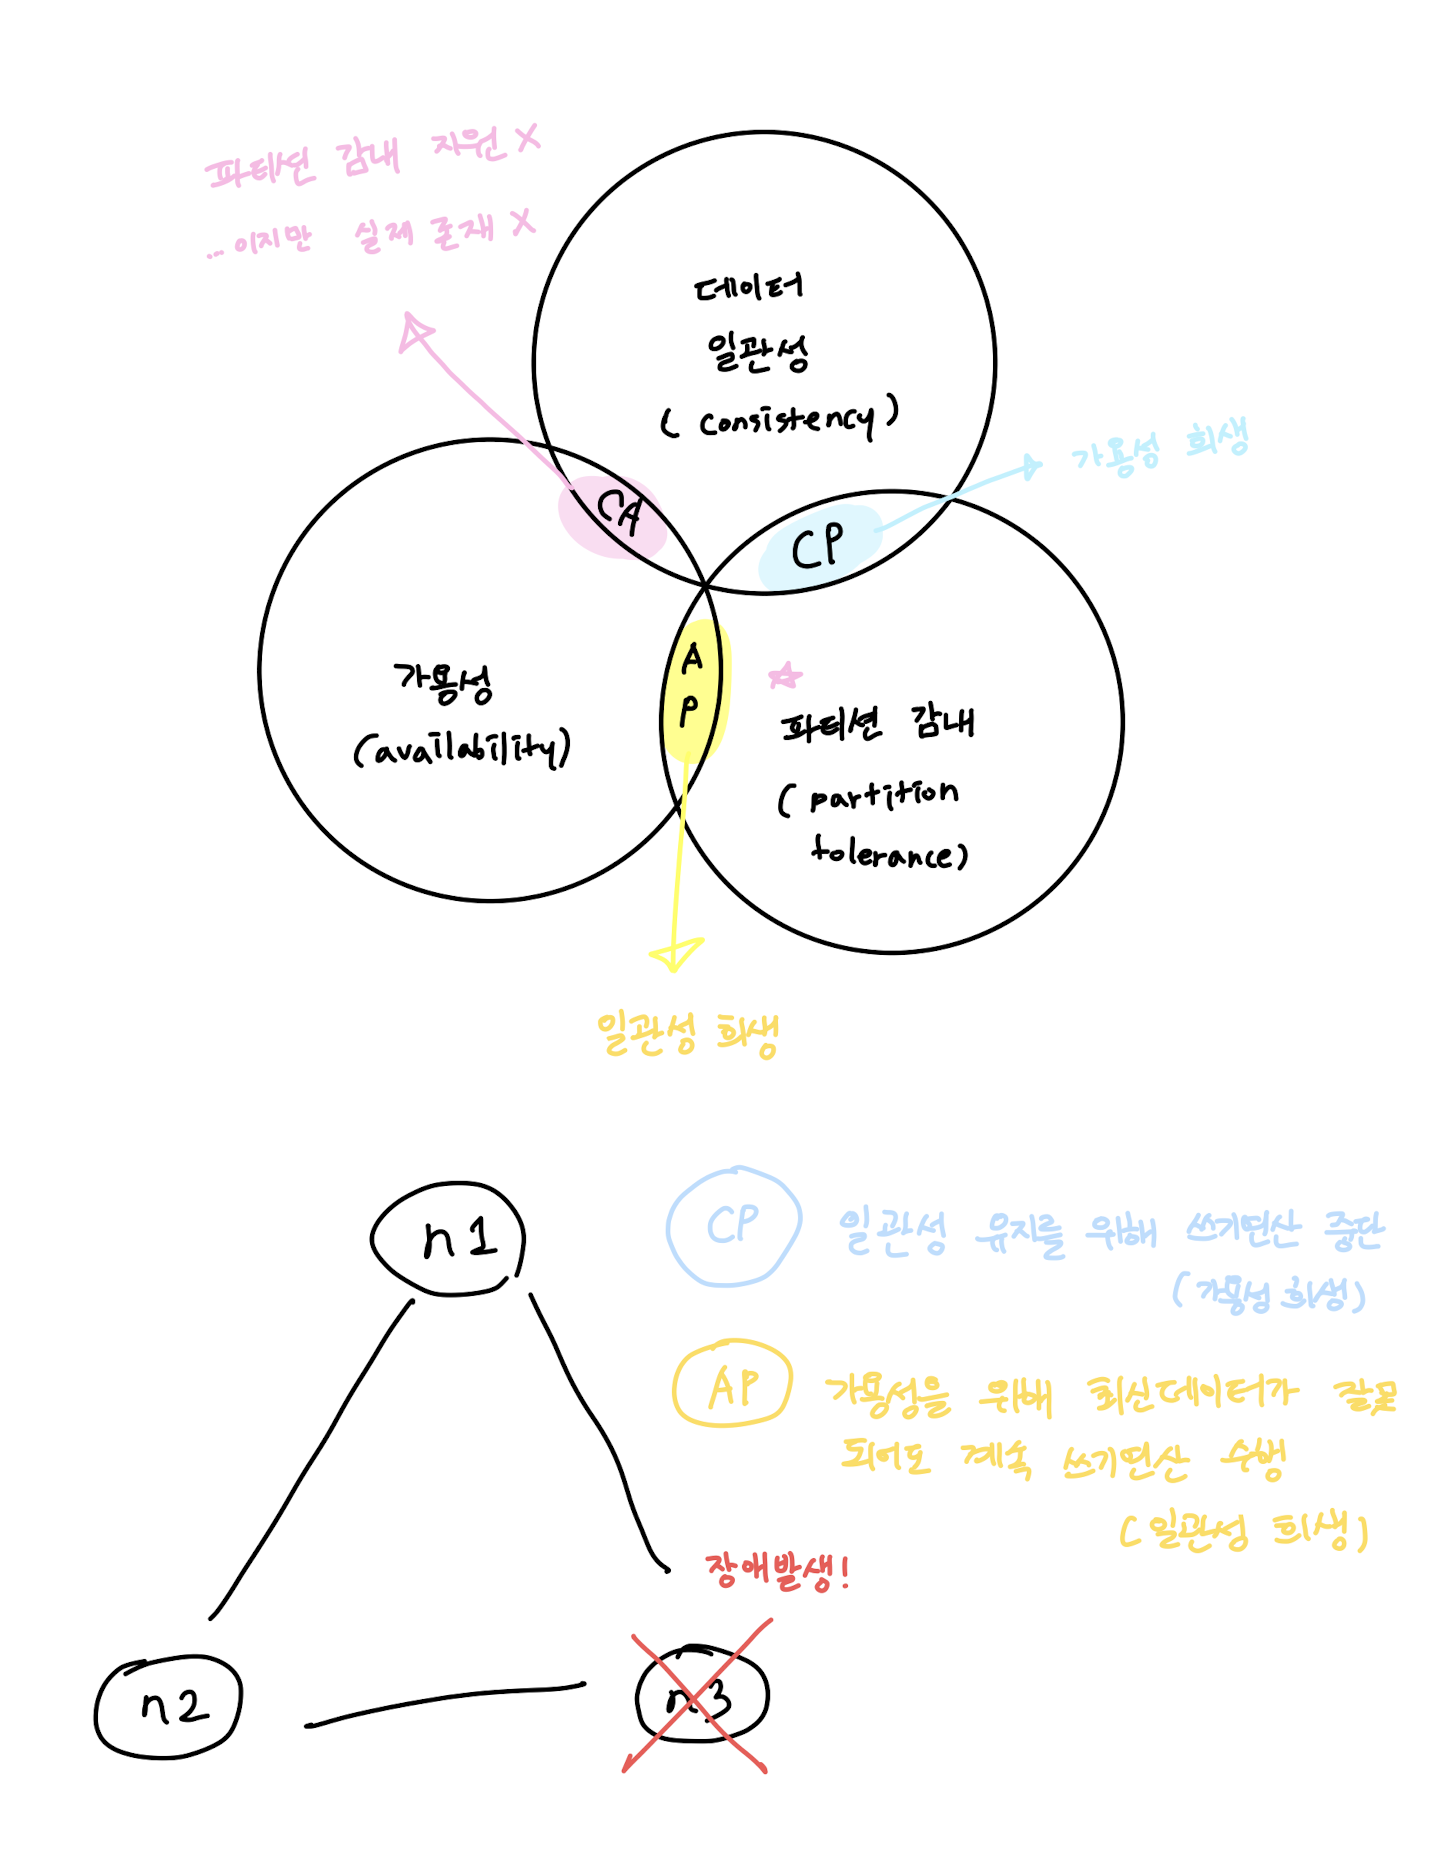 파티션 감내 지원 X
...이지만 실제 존재 X
데이터
일관성
(consistency)
가용성 희생
CA
CP
A
P
가용성
(availability)
파티션 감내
(partition
tolerance)
일관성 희생
n1
CP
일관성 유지를 위해 쓰기연산 중단
(가용성 희생)
AP
가용성을 위해 최신데이터가 잘못
되어도 계속 쓰기연산 수행
(일관성 희생)
장애발생!
n2
n3